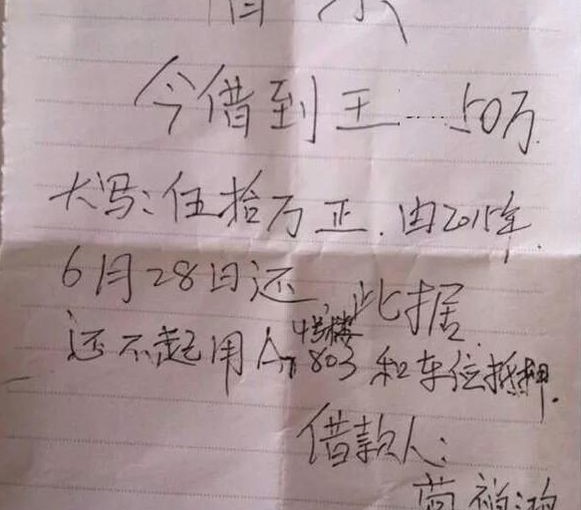 借条
今借到王 50万
大写:伍拾万正.由2015年.
6月28日还,此据
4号楼
还不起用A 803和车位抵押.
借款人: